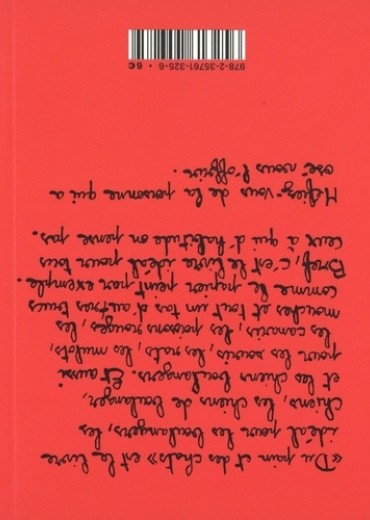 « Du pain et des chats » est le livre
idéal pour les boulangers, les
chiens, les chiens de boulanger,
et les chiens boulangers. Et aussi
pour les souris, les rats, les mulots,
les canaris, les poissons rouges, les
mouches et tout un tas d'autres trucs
comme le papier peint par exemple.
Bref, c'est le livre idéal pour tous
ceux à qui d'habitude on pense pas.
Méfiez-vous de la personne qui a
osé vous l'offrir.
978-2-35761-325-6 • 6€